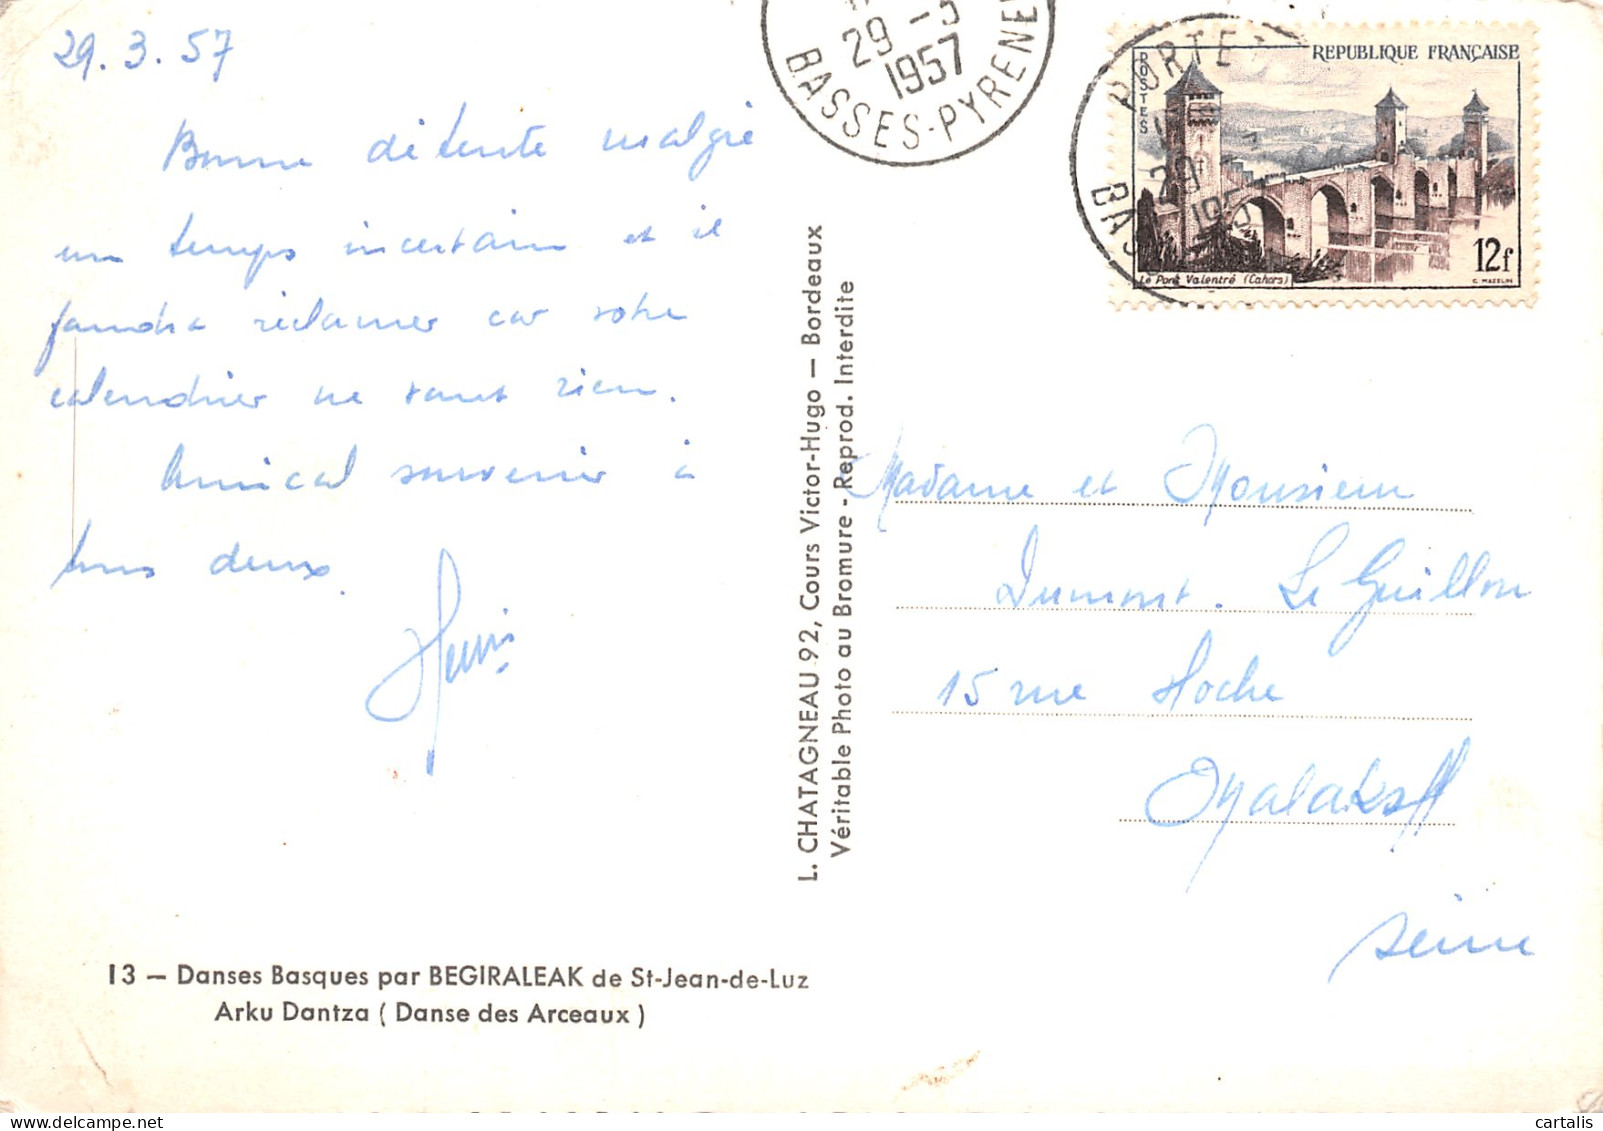 29.3.57
Bonne détente malgré
un temps incertain et il
faudra réclamer car votre
calendrier ne vaut rien.
Amical souvenir à
tous deux.
29 -3
1957
BASSES-PYRENE
PORTE
29
1957
BAS
REPUBLIQUE FRANÇAISE
POSTES
12f
Le Pont Valentré (Cahors)
C. MAZELIN
L. CHATAGNEAU 92, Cours Victor-Hugo — Bordeaux
Véritable Photo au Bromure - Reprod. Interdite
Madame et Monsieur
Dumont. Le Guillou
15 rue Hoche
Malakoff
Seine
13 — Danses Basques par BEGIRALEAK de St-Jean-de-Luz
Arku Dantza ( Danse des Arceaux )
delcampe.net
cartalis